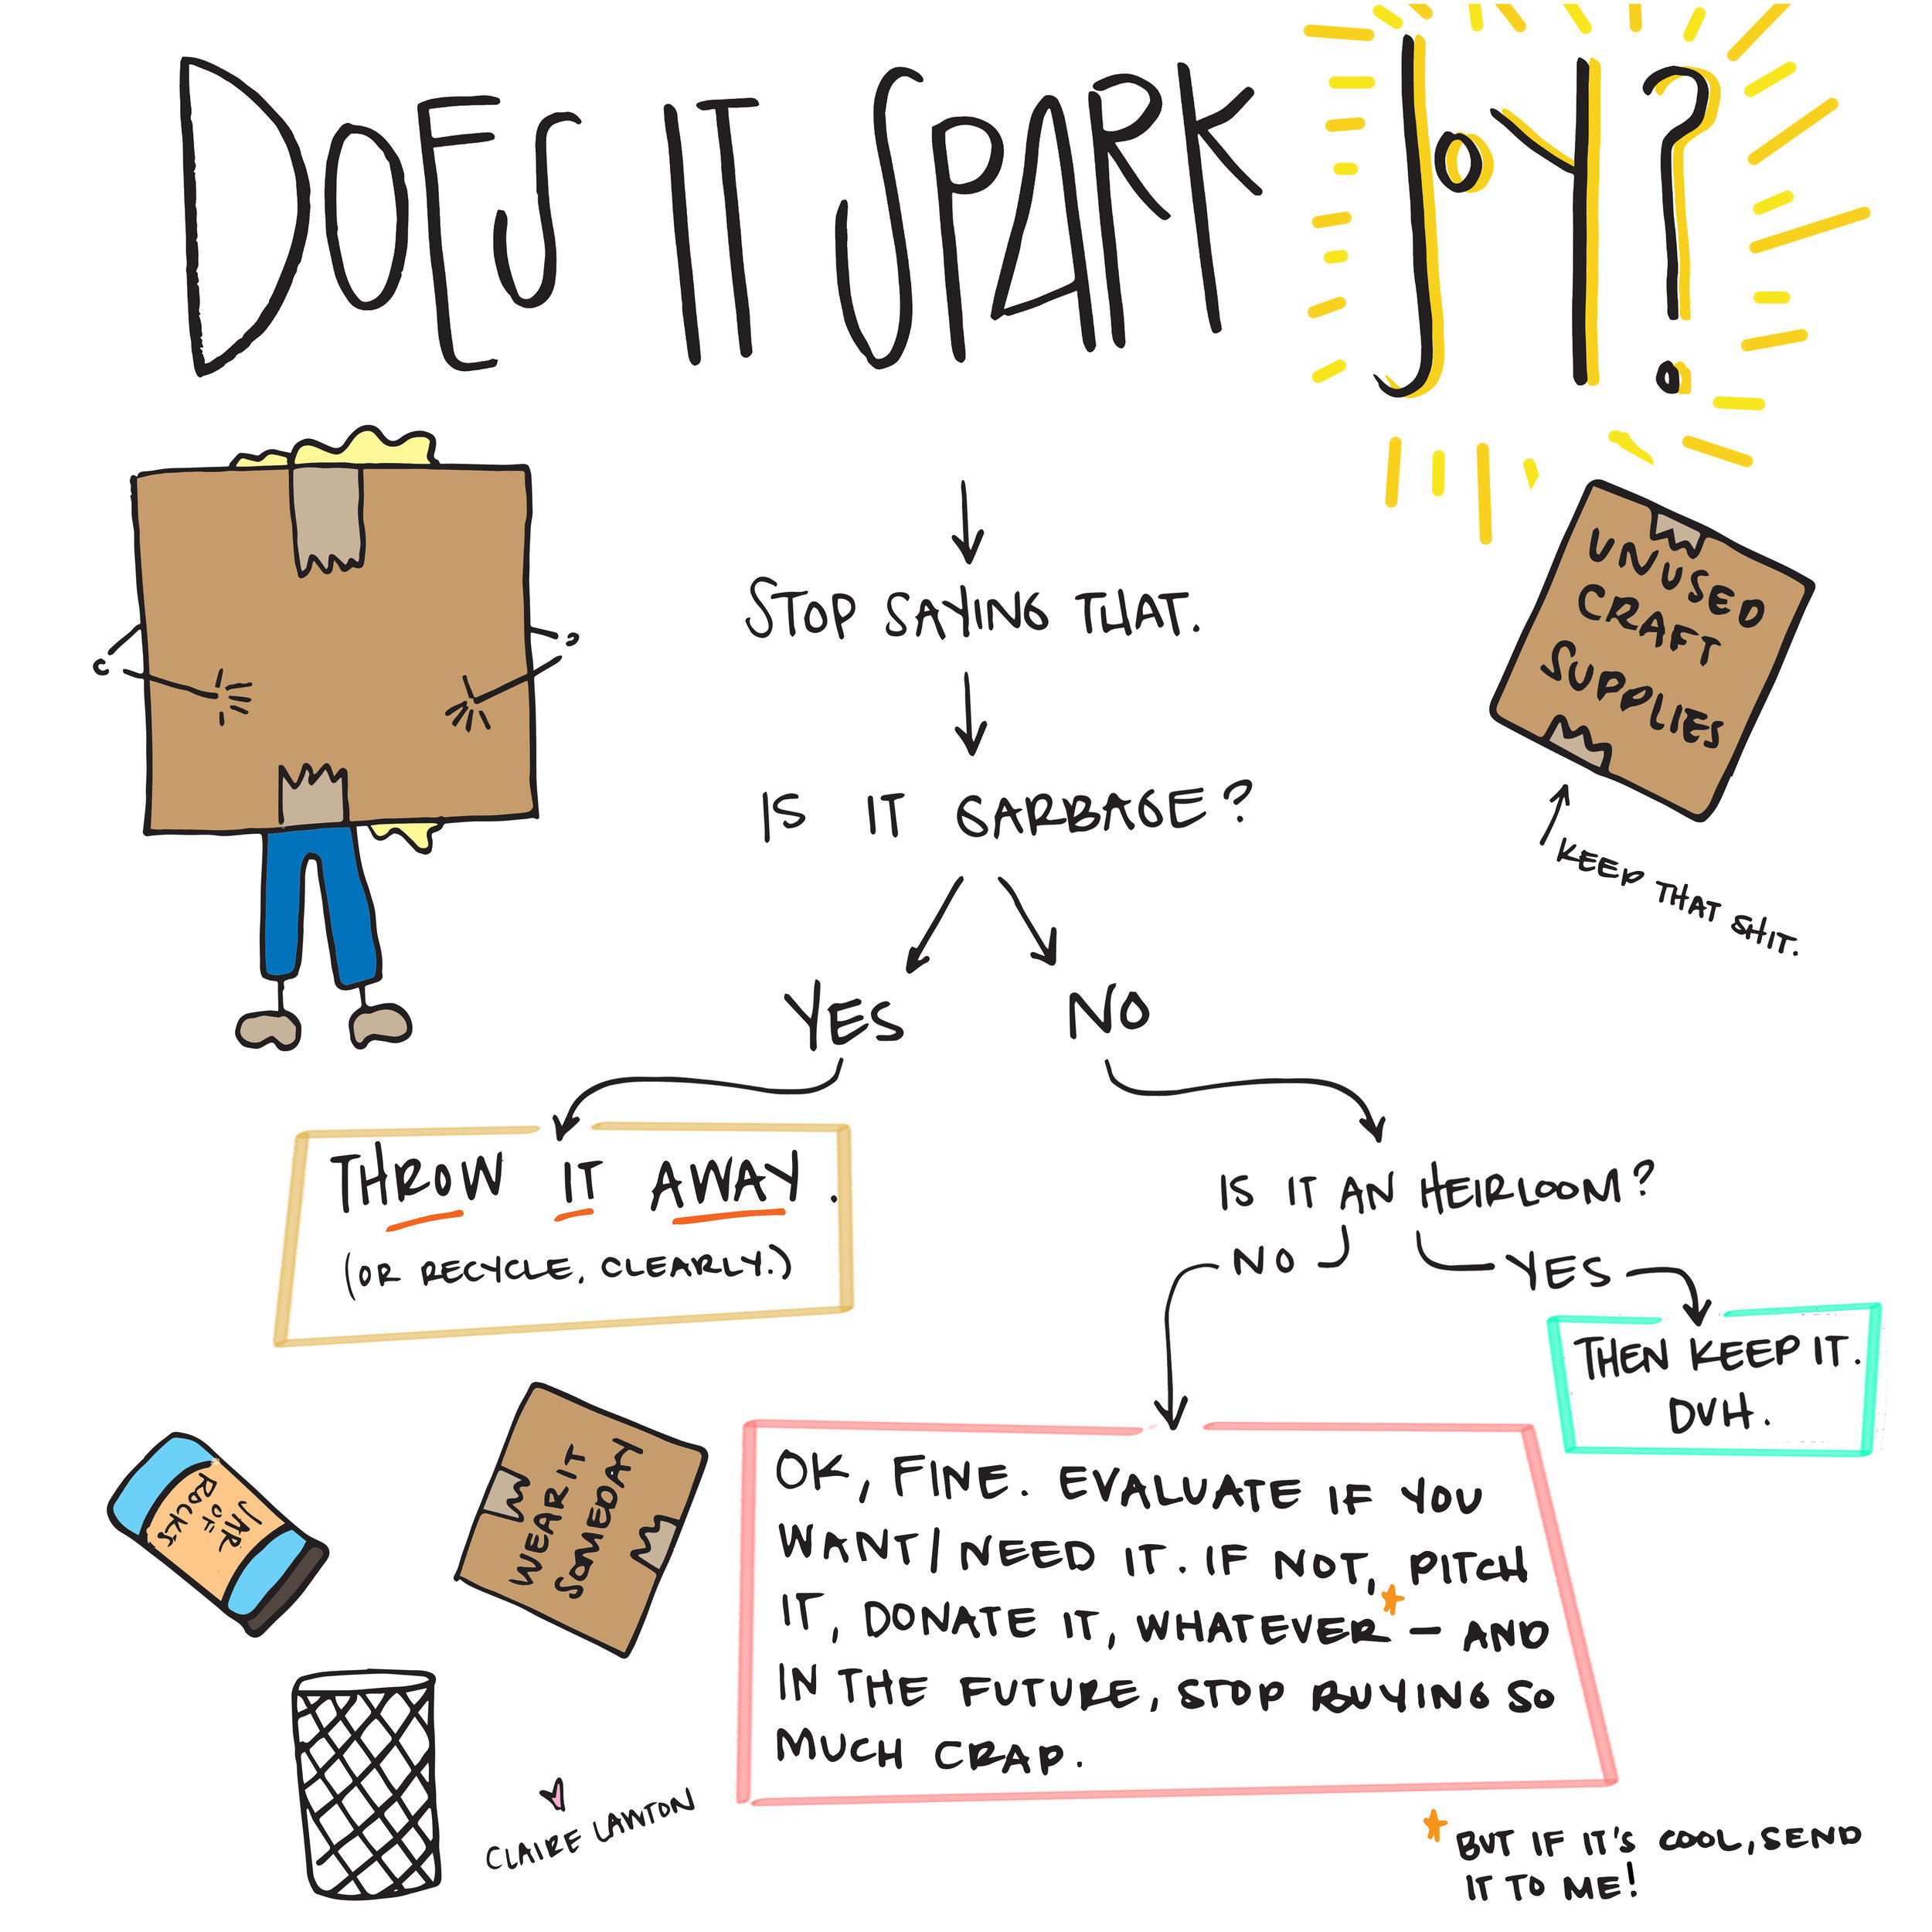 DOES IT SPARK JOY?
STOP SAYING THAT.
IS IT GARBAGE?
YES
NO
UNUSED
CRAFT
SUPPLIES
KEEP THAT SHIT.
THROW IT AWAY.
(OR RECYCLE, CLEARLY.)
IS IT AN HEIRLOOM?
NO
YES
THEN KEEP IT.
DUH.
OK, FINE. EVALUATE IF YOU
WANT/NEED IT. IF NOT, PITCH
IT, DONATE IT, WHATEVER* — AND
IN THE FUTURE, STOP BUYING SO
MUCH CRAP.
*BUT IF IT'S COOL, SEND
IT TO ME!
WEAR IT
SOMEDAY
JAR
OF
ROCKS
CLAIRE LAWTON